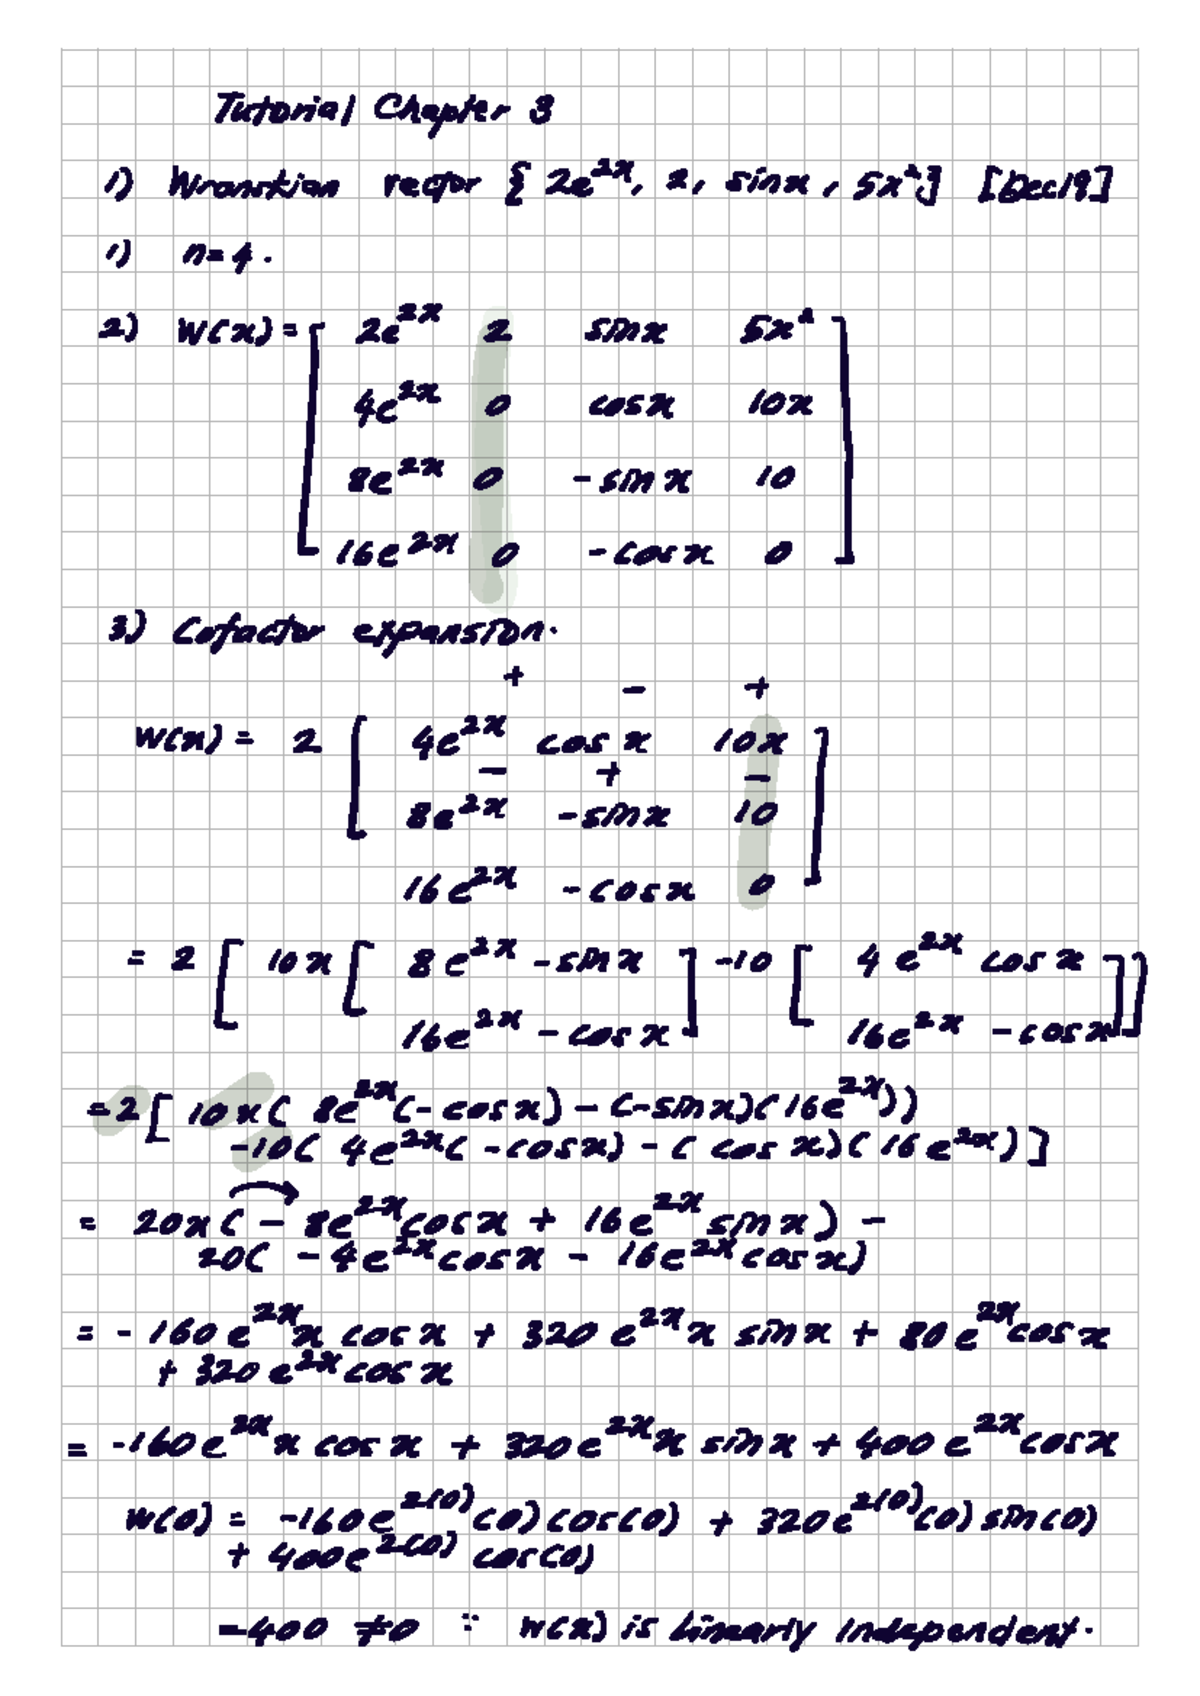 Tutorial Chapter 3
1) Wronskian vector { 2e^2x, 2, sinx, 5x²} [Dec19]
1) n=4.
2) W(x) = [ 2e^2x 2 sinx 5x²
4e^2x 0 cosx 10x
8e^2x 0 -sinx 10
16e^2x 0 -cosx 0 ]
3) Cofactor expansion.
+ - +
W(x) = 2 [ 4e^2x cosx 10x
- + -
8e^2x -sinx 10 ]
16e^2x -cosx 0
= 2 [ 10x [ 8e^2x -sinx ] -10 [ 4e^2x cosx ]]
16e^2x -cosx 16e^2x -cosx
=2[ 10x( 8e^2x(-cosx) - (-sinx)(16e^2x))
-10( 4e^2x(-cosx) - (cosx)(16e^2x)]
= 20x( - 8e^2xcosx + 16e^2x sinx) -
20( - 4e^2xcosx - 16e^2xcosx)
= - 160e^2x x cosx + 320e^2x x sinx + 80e^2xcosx
+ 320e^2xcosx
= -160e^2x x cosx + 320e^2x x sinx + 400e^2xcosx
W(0) = -160e^2(0)(0)cos(0) + 320e^2(0)(0)sin(0)
+ 400e^2(0) cos(0)
=400 ≠0 ∵ W(x) is Linearly Independent.